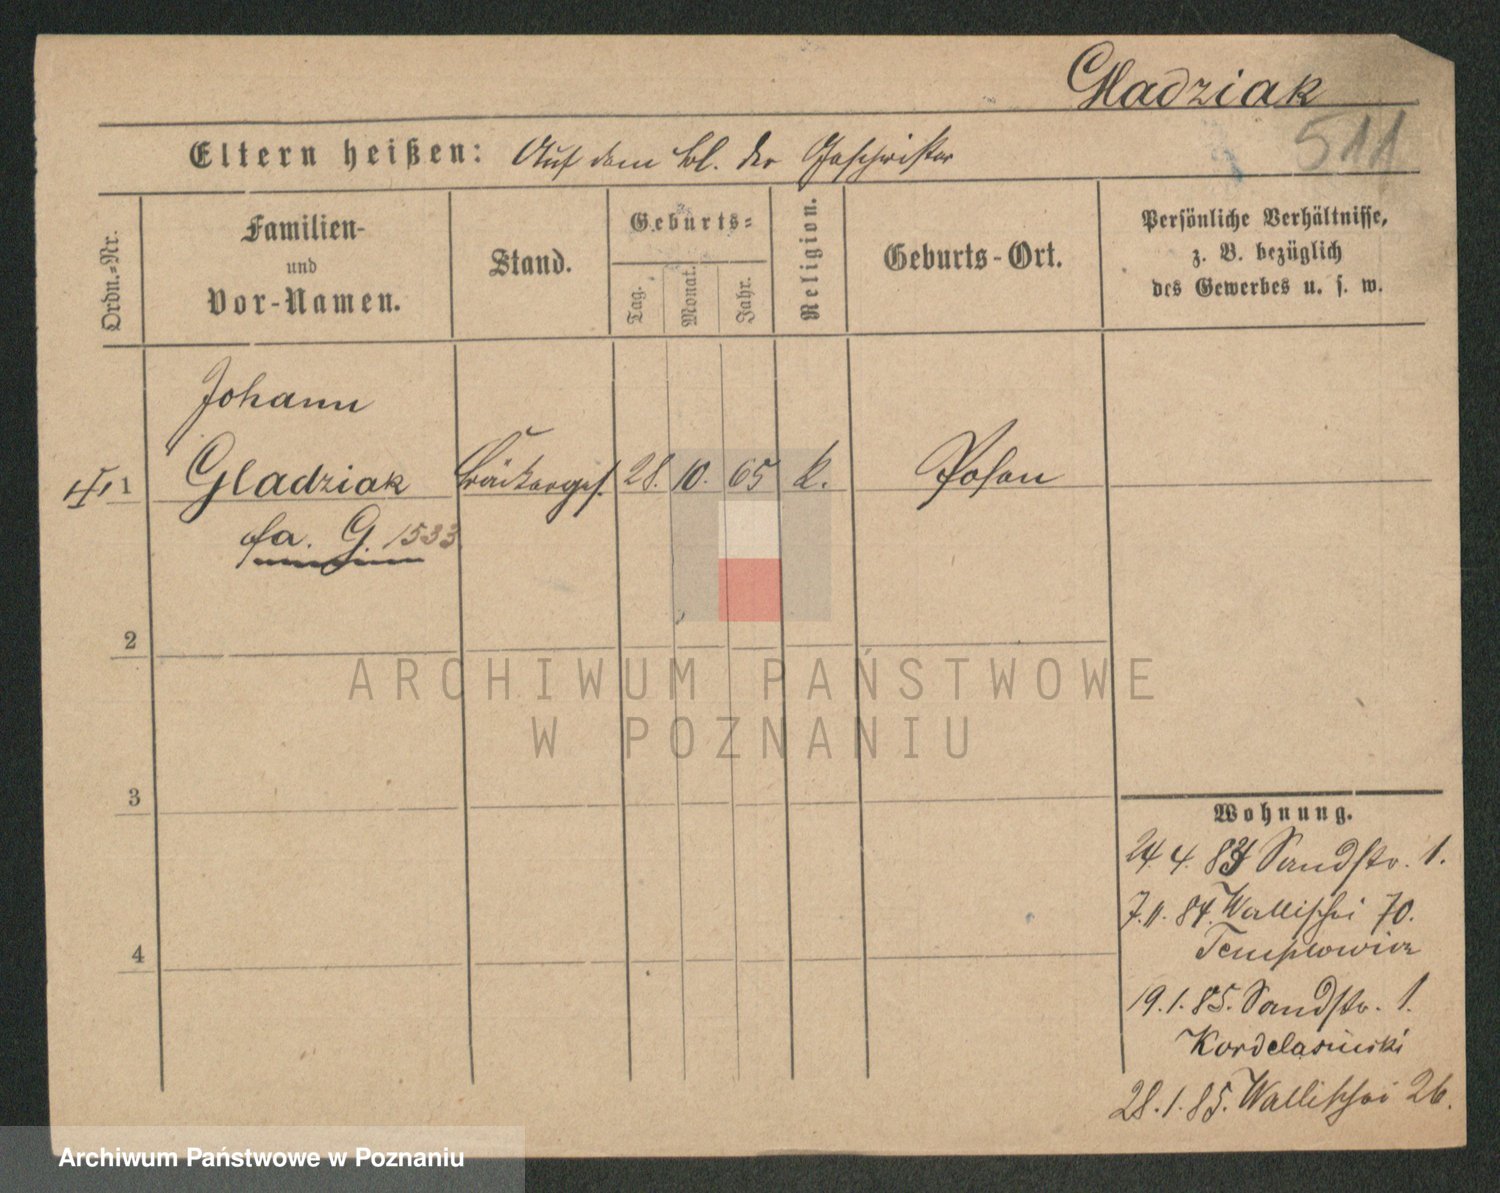 Gladziak
511
Eltern heißen: Auf dem bl. der Geschwister
Ordn.=Nr.
Familien-
und
Vor-Namen.
Stand.
Geburts=
Tag.
Monat.
Jahr.
Religion.
Geburts-Ort.
Persönliche Verhältnisse,
z. B. bezüglich
des Gewerbes u. s. w.
Johann
1 Gladziak Bäckerges. 28. 10. 65 k. Posen
fa. G. 1533
2
3
4
ARCHIWUM PAŃSTWOWE
W POZNANIU
Wohnung.
24. 4. 84 Sandstr. 1.
7.11. 84. Wallischei 70.
Templowicz
19. 1. 85. Sandstr. 1.
28. 1. 85. Wallischei 26.
Archiwum Państwowe w Poznaniu